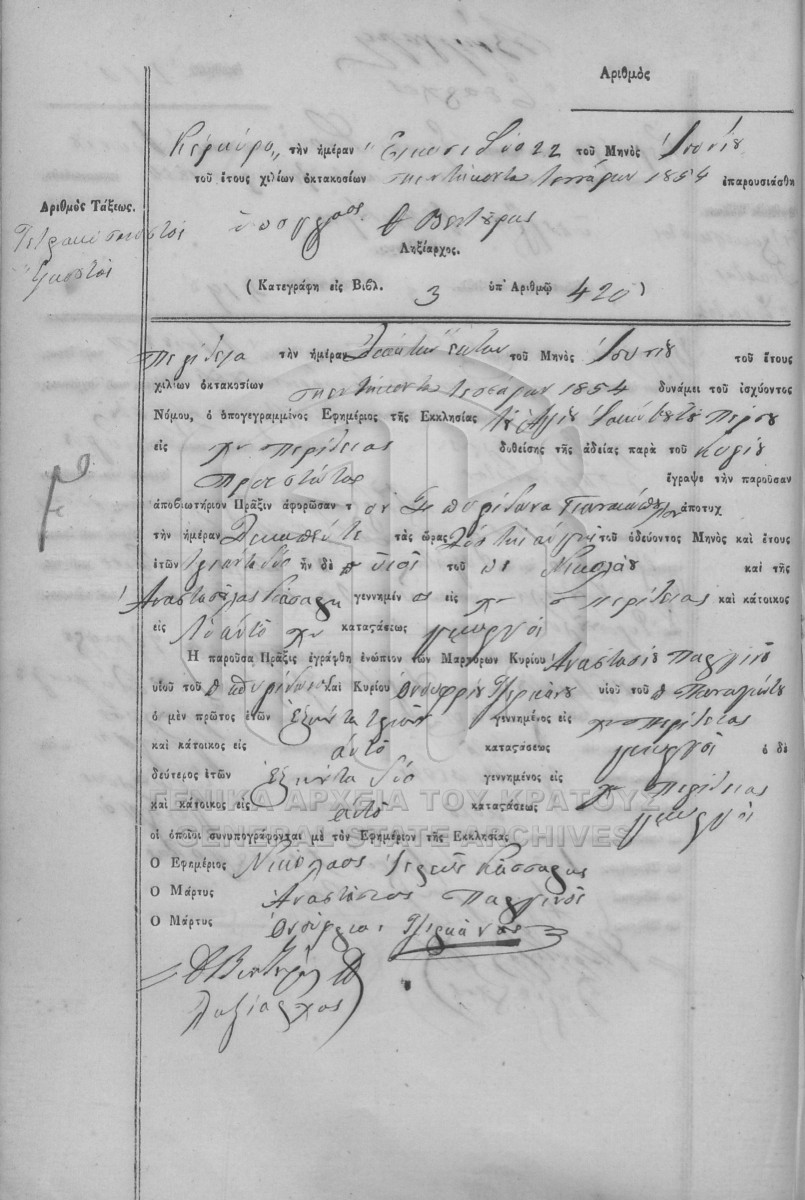 Ἀριθμὸς
Κέρκυρα, τὴν ἡμέραν εἴκοσι δύο 22 τοῦ Μηνὸς Ἰουνίου
τοῦ ἔτους χιλίων ὀκτακοσίων πεντήκοντα τεσσάρων 1854 ἐπαρουσιάσθη
Ἀριθμὸς Τάξεως.
Τετρακοσιοστὸς
εἰκοστὸς
Ληξίαρχος.
(Κατεγράφη εἰς Βιβλ. 3 ὑπ' Ἀριθμῷ 420)
Περίθεια τὴν ἡμέραν δεκάτην ἕκτην τοῦ Μηνὸς Ἰουνίου τοῦ ἔτους
χιλίων ὀκτακοσίων πεντήκοντα τεσσάρων 1854 δυνάμει τοῦ ἰσχύοντος
Νόμου, ὁ ὑπογεγραμμένος Ἐφημέριος τῆς Ἐκκλησίας τοῦ Ἁγίου Ἰακώβου τοῦ Πέρσου
εἰς χν Περίθειας δοθείσης τῆς ἀδείας παρὰ τοῦ Κυρίου
Προεστῶτος ἔγραψε τὴν παροῦσαν
ἀποβιωτήριον Πρᾶξιν ἀφορῶσαν τὸν Σπυρίδωνα ἀποτυχ
τὴν ἡμέραν Δεκαπέντε τὰς ὥρας τοῦ ὁδεύοντος Μηνὸς καὶ ἔτους
ἐτῶν τριάντα δύο ἦν δὲ υἱὸς τοῦ Νικολάου καὶ τῆς
Ἀναστασούλας Κάσαρη γεννημένος εἰς χν Περίθειας καὶ κάτοικος
εἰς τὸ αὐτὸ χν καταστάσεως γεωργὸς
Ἡ παροῦσα Πρᾶξις ἐγράφθη ἐνώπιον τῶν Μαρτύρων Κυρίου Ἀναστασίου Παργινοῦ
υἱοῦ τοῦ π Σπυρίδωνος καὶ Κυρίου Ὀνουφρίου Τζιρκάνου υἱοῦ τοῦ π Παναγιώτου
ὁ μὲν πρῶτος ἐτῶν Ἑξήντα τριῶν γεννημένος εἰς χν Περίθειας
καὶ κάτοικος εἰς αὐτὸ καταστάσεως γεωργὸς ὁ δὲ
δεύτερος ἐτῶν Ἑξήντα δύο γεννημένος εἰς χν Περίθειας
καὶ κάτοικος εἰς αὐτὸ καταστάσεως γεωργὸς
οἱ ὁποῖοι συνυπογράφονται μὲ τὸν Ἐφημέριον τῆς Ἐκκλησίας
Ὁ Ἐφημέριος Νικόλαος Ἱερεὺς Κάσσαρης
Ὁ Μάρτυς Ἀναστάσιος Παργινὸς
Ὁ Μάρτυς Ὀνούφριος Τζιρκάνος
Ληξίαρχος
ΓΕΝΙΚΑ ΑΡΧΕΙΑ ΤΟΥ ΚΡΑΤΟΥΣ
GENERAL STATE ARCHIVES